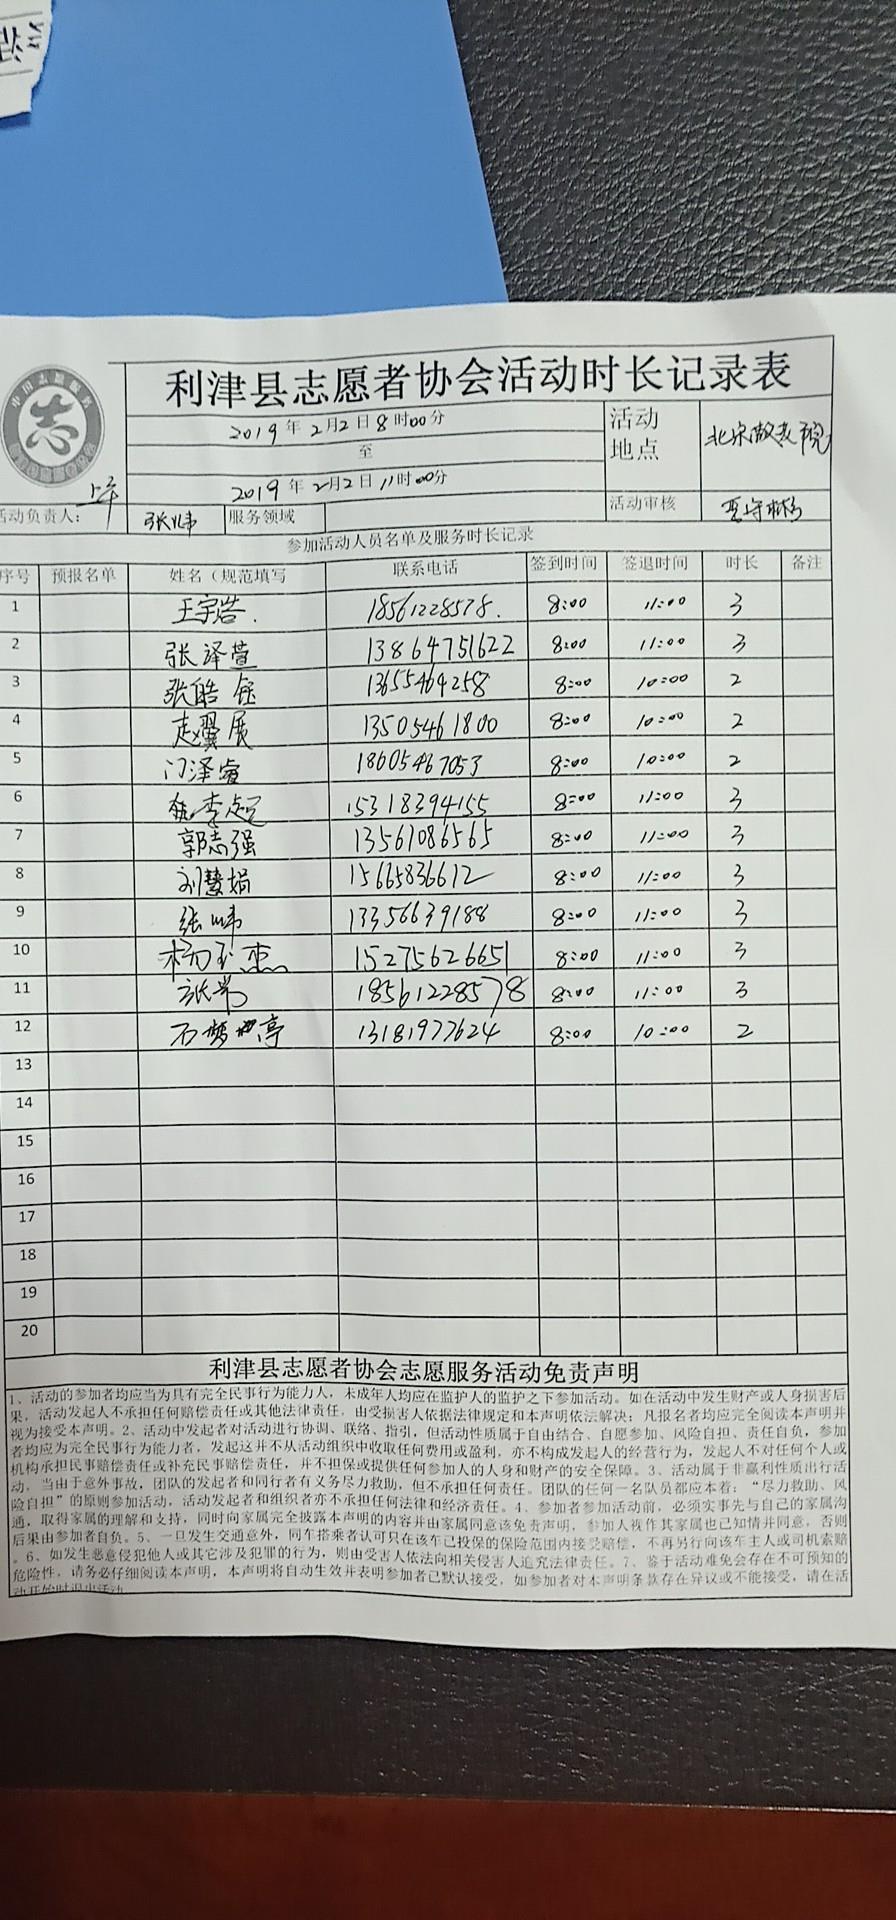 利津县志愿者协会活动时长记录表
2019年2月2日8时00分
至
2019年2月2日11时00分
活动地点
北宋敬老院
上午
活动负责人: 张炜 服务领域 活动审核
参加活动人员名单及服务时长记录
序号 预报名单 姓名（规范填写 联系电话 签到时间 签退时间 时长 备注
1 王宇浩. 18561228578. 8:00 11:00 3
2 张泽萱 13864751622 8:00 11:00 3
3 张皓钰 13655464258 8:00 10:00 2
4 赵翼展 13505461800 8:00 10:00 2
5 门泽睿 18605467053 8:00 10:00 2
6 李超 15318394155 8:00 11:00 3
7 郭志强 13561086565 8:00 11:00 3
8 刘慧娟 15665836612 8:00 11:00 3
9 张炜 13356639188 8:00 11:00 3
10 杨玉杰 15275626651 8:00 11:00 3
11 18561228578 8:00 11:00 3
12 石梦亭 13181977624 8:00 10:00 2
13
14
15
16
17
18
19
20
利津县志愿者协会志愿服务活动免责声明
1、活动的参加者均应当为具有完全民事行为能力人，未成年人均应在监护人的监护之下参加活动。如在活动中发生财产或人身损害后
果，活动发起人不承担任何赔偿责任或其他法律责任，由受损害人依据法律规定和本声明依法解决；凡报名者均应完全阅读本声明并
视为接受本声明。2、活动中发起者对活动进行协调、联络、指引，但活动性质属于自由结合、自愿参加、风险自担、责任自负，参加
者均应为完全民事行为能力者，发起这并不从活动组织中收取任何费用或盈利，亦不构成发起人的经营行为，发起人不对任何个人或
机构承担民事赔偿责任或补充民事赔偿责任，并不担保或提供任何参加人的人身和财产的安全保障。3、活动属于非赢利性质出行活
动，当由于意外事故，团队的发起者和同行者有义务尽力救助，但不承担任何责任。团队的任何一名队员都应本着：“尽力救助、风
险自担”的原则参加活动，活动发起者和组织者亦不承担任何法律和经济责任。4、参加者参加活动前，必须实事先与自己的家属沟
通，取得家属的理解和支持，同时向家属完全披露本声明的内容并由家属同意该免责声明，参加人视作其家属也已知情并同意，否则
后果由参加者自负。5、一旦发生交通意外，同车搭乘者认可只在该车已投保的保险范围内接受赔偿，不再另行向该车主人或司机索赔
。6、如发生恶意侵犯他人或其它涉及犯罪的行为，则由受害人依法向相关侵害人追究法律责任。7、鉴于活动难免会存在不可预知的
危险性，请务必仔细阅读本声明，本声明将自动生效并表明参加者已默认接受，如参加者对本声明条款存在异议或不能接受，请在活
动开始时退出活动